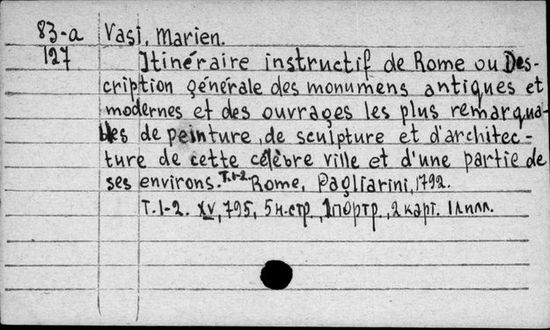 83-a Vasi, Marien.
127 Itinéraire instructif de Rome ou Des-
cription générale des monumens antiques et
modernes et des ouvrages les plus remarqua-
bles de peinture, de sculpture et d'architec-
ture de cette célèbre ville et d'une partie de
ses environs. T.1-2. Rome, Pagliarini, 1792.
T.1-2. XV, 795, 5 н.стр., 1 портр., 2 карт. 1 илл.